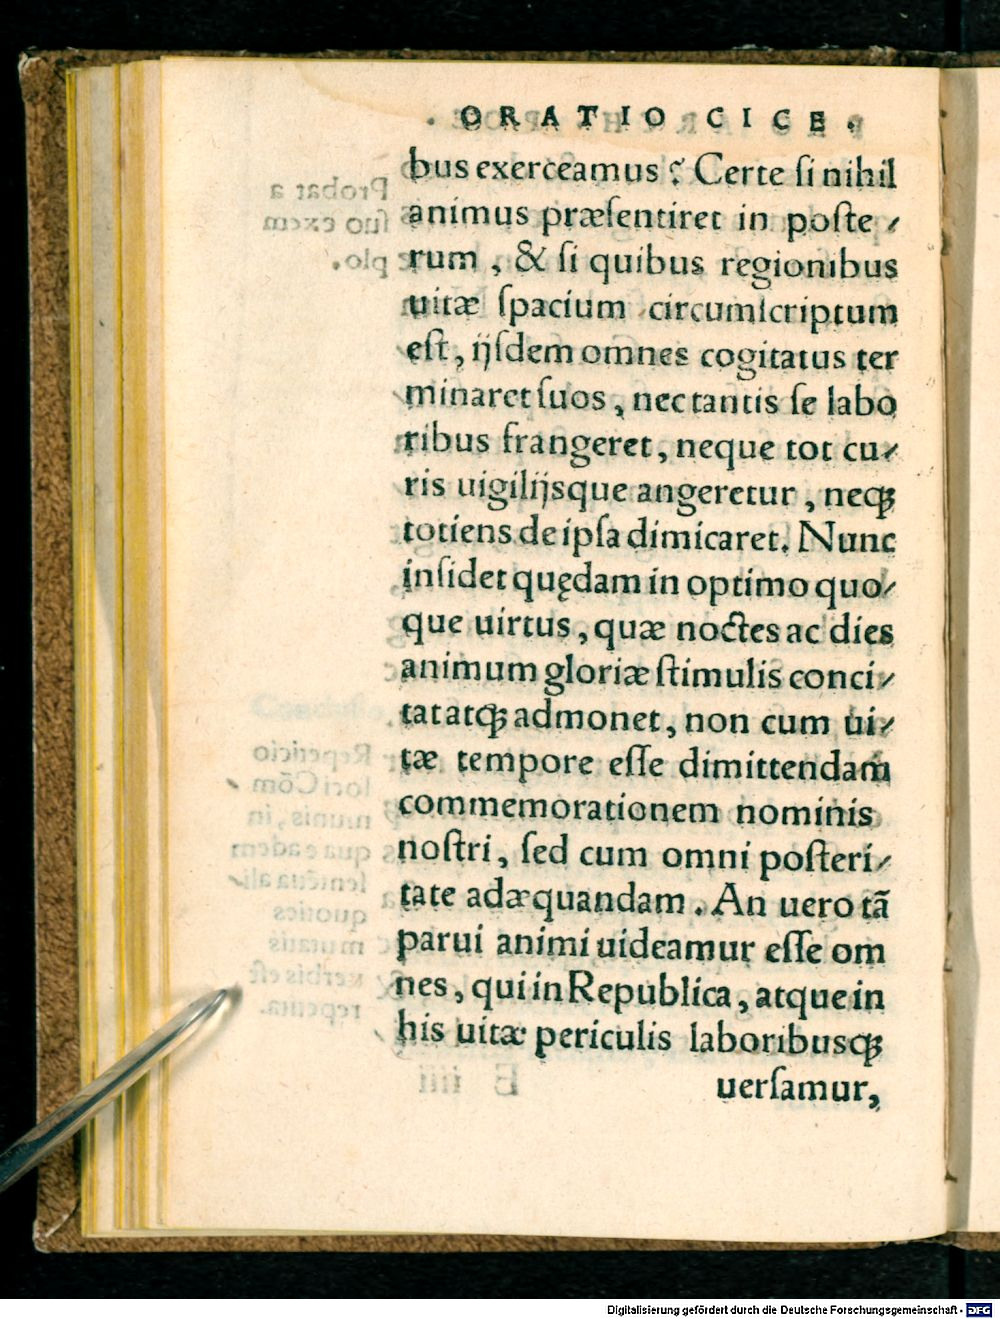 . ORATIO CICE.
bus exerceamus? Certe ſi nihil
animus præſentiret in poſte⸗
rum, & ſi quibus regionibus
uitæ ſpacium circumſcriptum
eſt, ijſdem omnes cogitatus ter
minaret ſuos, nec tantis ſe labo
ribus frangeret, neque tot cu⸗
ris uigilijsque angeretur, neqꝫ
totiens de ipſa dimicaret. Nunc
inſidet quędam in optimo quo⸗
que uirtus, quæ noctes ac dies
animum gloriæ ſtimulis conci⸗
tat atqꝫ admonet, non cum ui⸗
tæ tempore eſſe dimittendam
commemorationem nominis
noſtri, ſed cum omni poſteri⸗
tate adæquandam. An uero tā
parui animi uideamur eſſe om
nes, qui in Republica, atque in
his uitæ periculis laboribusqꝫ
uerſamur,
Digitalisierung gefördert durch die Deutsche Forschungsgemeinschaft - DFG